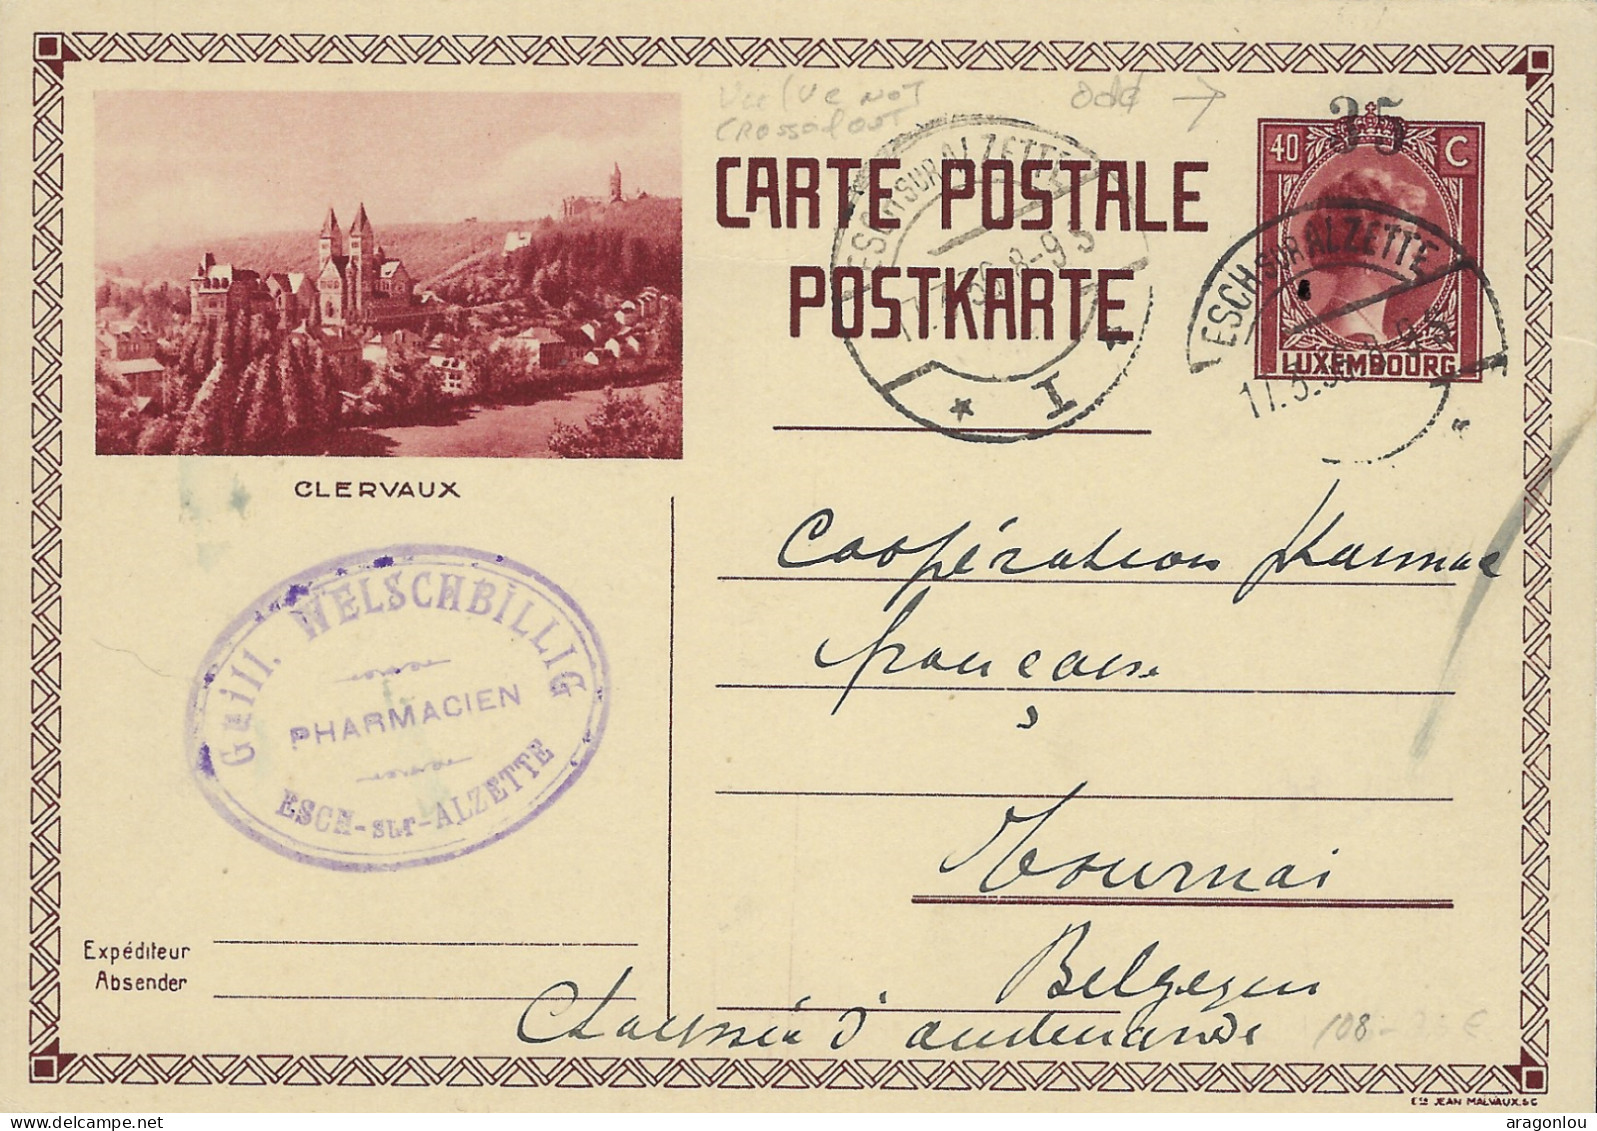 Value NOT
crossed out
Odd →
35
40 C
CARTE POSTALE
POSTKARTE
LUXEMBOURG
ESCH SUR ALZETTE
8-9 5
* I *
ESCH SUR ALZETTE
17.3.36 8-9 5
CLERVAUX
Coopération pharmac
française
Tournai
Belgegen
Guill. WELSCHBILLIG
PHARMACIEN
ESCH-sur-ALZETTE
Expéditeur
Absender
Chaussée d'audenarde
108
€
Ets JEAN MALVAUX.S.C
www.delcampe.net
aragonlou